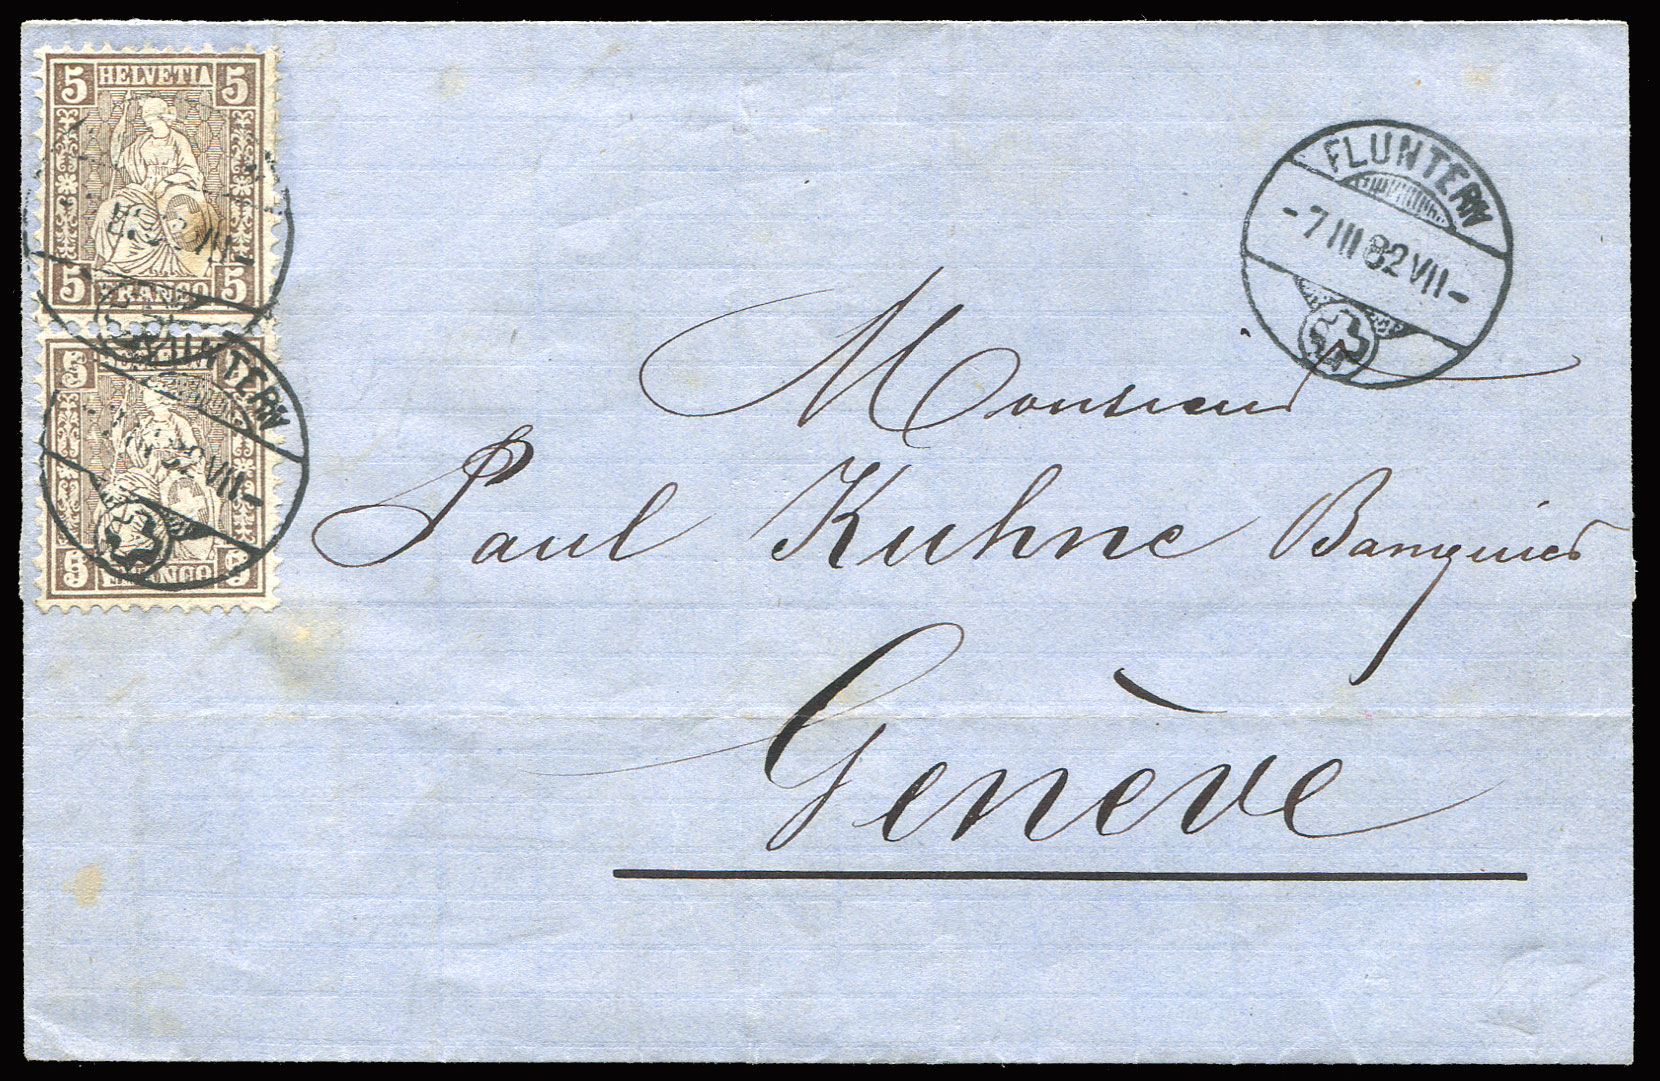 5 HELVETIA 5
5 FRANCO 5
5 5
5 FRANCO 5
FLUNTERN
-7 III 82 VII-
FLUNTERN
-7 III 82 VII-
Monsieur
Paul Kuhne Banquier
Genève